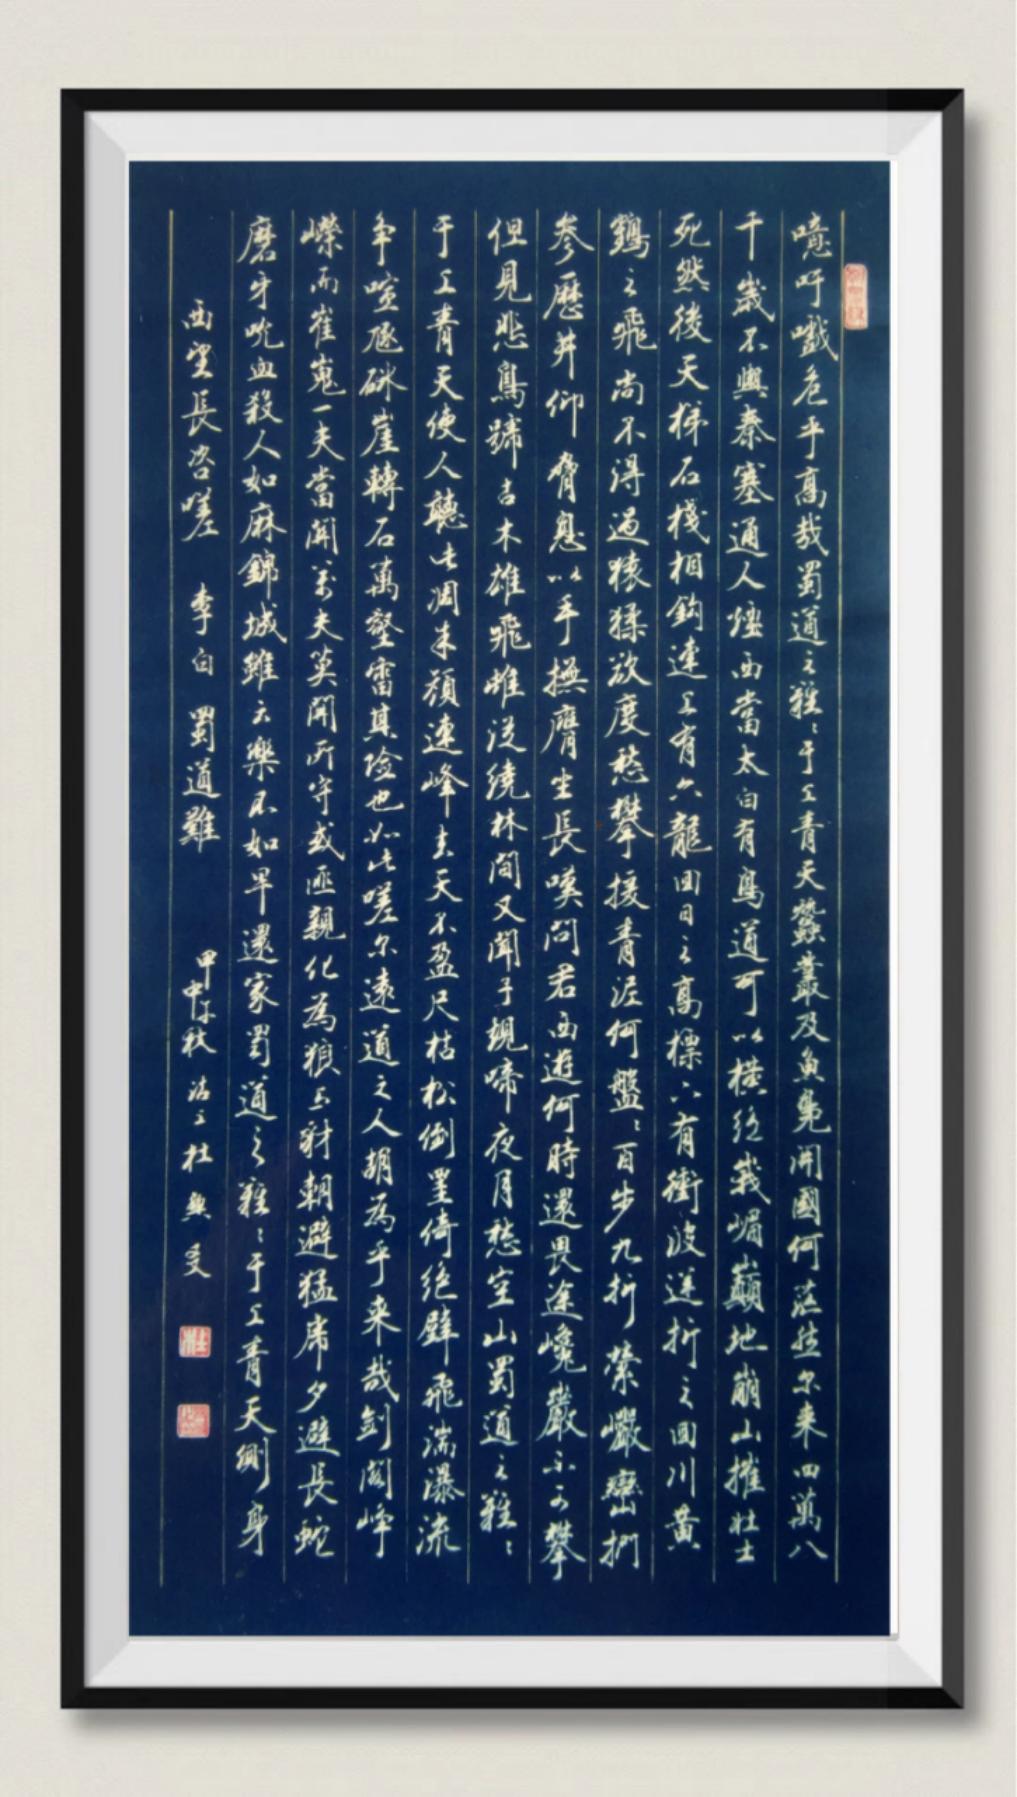 噫吁戲危乎高哉蜀道之難〻于上青天蠶叢及魚鳧開國何茫然尔来四萬八
千歲不與秦塞通人煙西當太白有鳥道可以橫絕峩嵋巔地崩山摧壮士
死然後天梯石棧相鈎連上有六龍回日之高標下有衝波逆折之回川黃
鶴之飛尚不得過猿猱欲度愁攀援青泥何盤〻百步九折縈巖巒捫
參歷井仰脅息以手撫膺坐長嘆問君西遊何時還畏途巉巖不可攀
但見悲鳥號古木雄飛雌從繞林間又聞子規啼夜月愁空山蜀道之難〻
于上青天使人聽此凋朱顏連峰去天不盈尺枯松倒掛倚絕壁飛湍瀑流
争喧豗砯崖轉石萬壑雷其险也如此嗟尔遠道之人胡為乎来哉剑阁崢
嶸而崔嵬一夫當關万夫莫開所守或匪親化為狼与豺朝避猛虎夕避長蛇
磨牙吮血殺人如麻錦城雖云樂不如早還家蜀道之難〻于上青天側身
西望長咨嗟 李白 蜀道難 甲午秋 杜